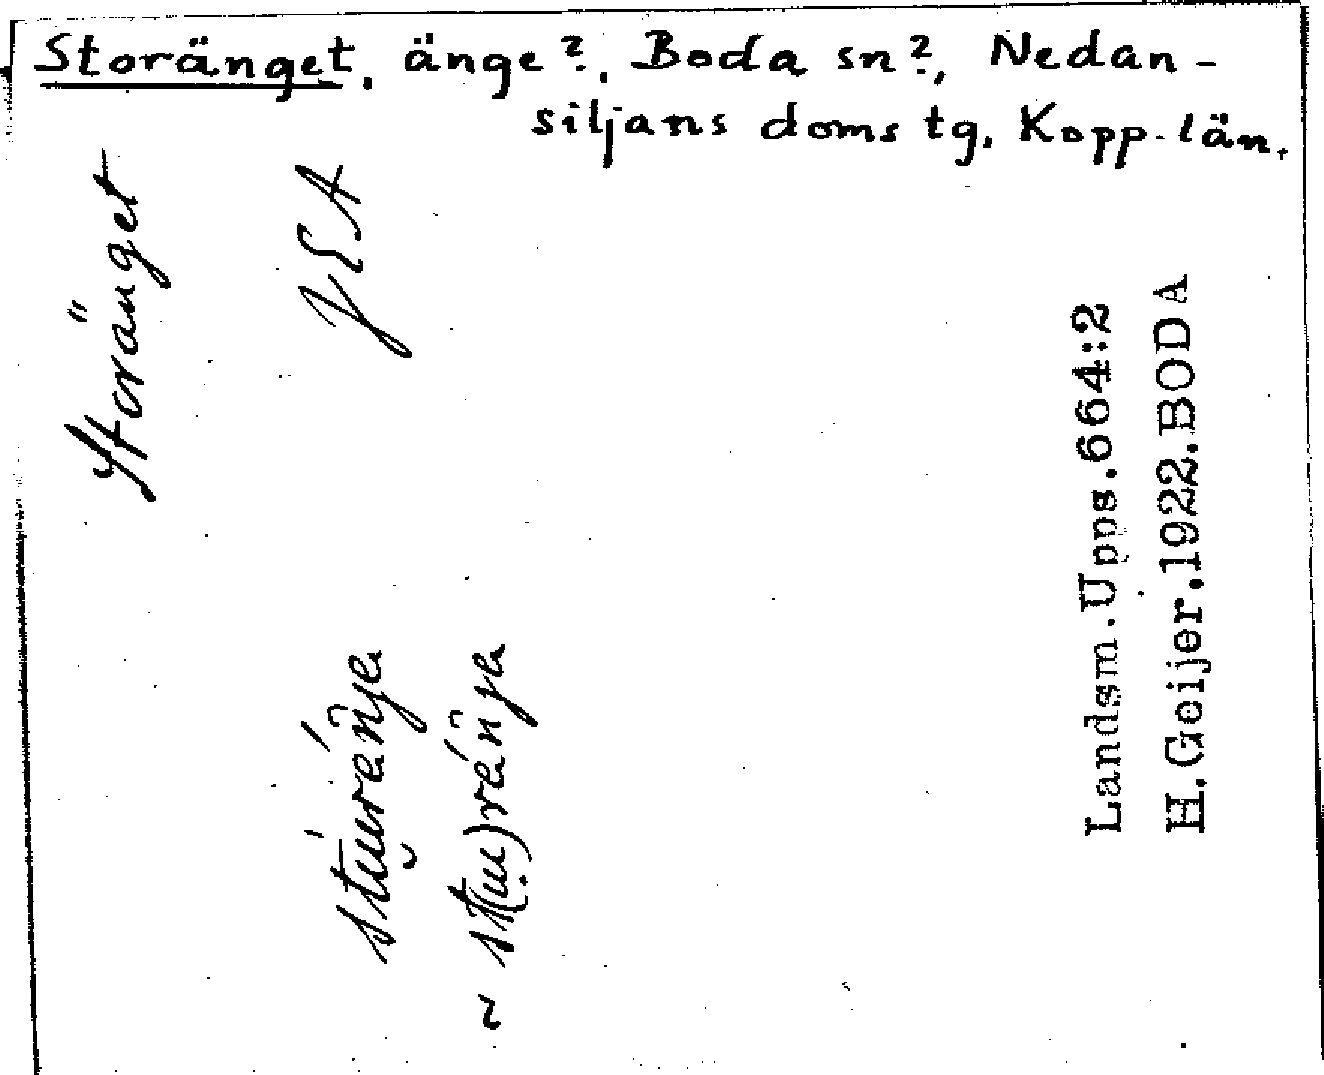 Storänget, änge?, Boda sn?, Nedan-
siljans doms tg, Kopp-län.
Storänget
JEA
Landsm.Upps.664:2
H.Geijer.1922.BODA